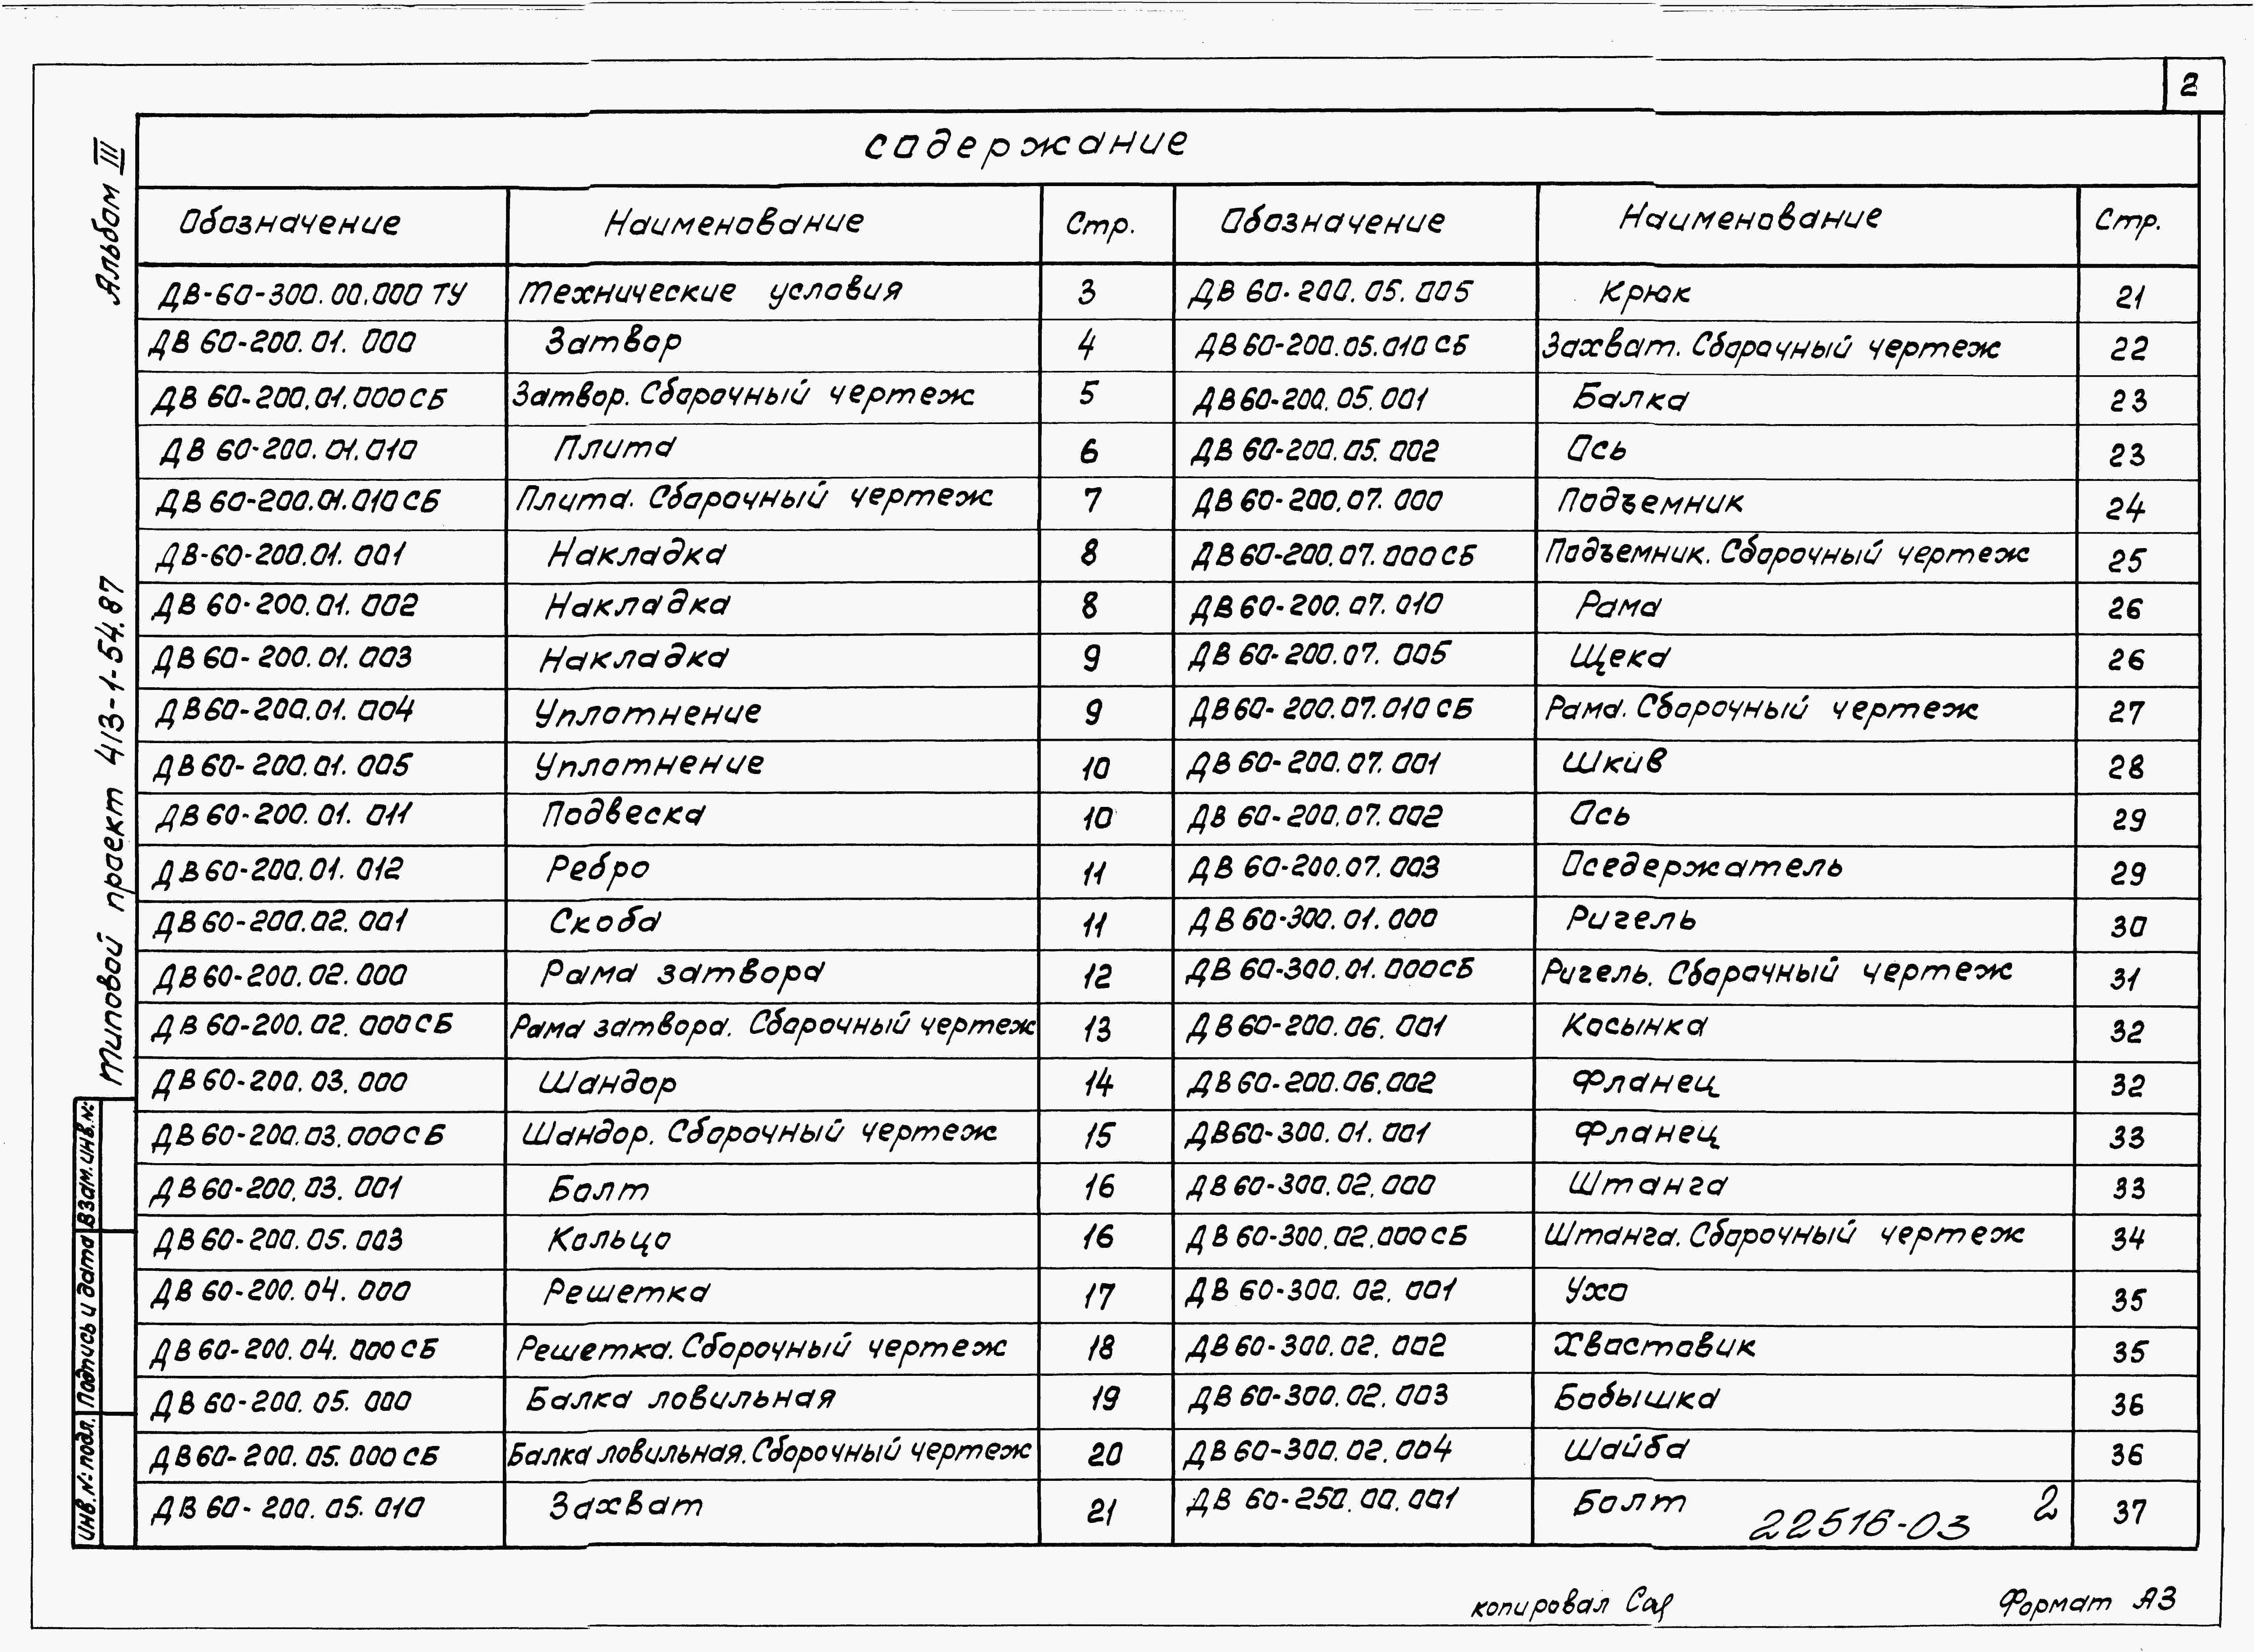 2
Содержание
Обозначение Наименование Стр. Обозначение Наименование Стр.
ДВ-60-300.00.000 ТУ Технические условия 3 ДВ 60-200.05.005 Крюк 21
ДВ 60-200.01.000 Затвор 4 ДВ 60-200.05.010 СБ Захват. Сборочный чертеж 22
ДВ 60-200.01.000 СБ Затвор. Сборочный чертеж 5 ДВ 60-200.05.001 Балка 23
ДВ 60-200.01.010 Плита 6 ДВ 60-200.05.002 Ось 23
ДВ 60-200.01.010 СБ Плита. Сборочный чертеж 7 ДВ 60-200.07.000 Подъемник 24
ДВ-60-200.01.001 Накладка 8 ДВ 60-200.07.000 СБ Подъемник. Сборочный чертеж 25
ДВ 60-200.01.002 Накладка 8 ДВ 60-200.07.010 Рама 26
ДВ 60-200.01.003 Накладка 9 ДВ 60-200.07.005 Щека 26
ДВ 60-200.01.004 Уплотнение 9 ДВ 60-200.07.010 СБ Рама. Сборочный чертеж 27
ДВ 60-200.01.005 Уплотнение 10 ДВ 60-200.07.001 Шкив 28
ДВ 60-200.01.011 Подвеска 10 ДВ 60-200.07.002 Ось 29
ДВ 60-200.01.012 Ребро 11 ДВ 60-200.07.003 Оседержатель 29
ДВ 60-200.02.001 Скоба 11 ДВ 60-300.01.000 Ригель 30
ДВ 60-200.02.000 Рама затвора 12 ДВ 60-300.01.000 СБ Ригель. Сборочный чертеж 31
ДВ 60-200.02.000 СБ Рама затвора. Сборочный чертеж 13 ДВ 60-200.06.001 Косынка 32
ДВ 60-200.03.000 Шандор 14 ДВ 60-200.06.002 Фланец 32
ДВ 60-200.03.000 СБ Шандор. Сборочный чертеж 15 ДВ 60-300.01.001 Фланец 33
ДВ 60-200.03.001 Болт 16 ДВ 60-300.02.000 Штанга 33
ДВ 60-200.05.003 Кольцо 16 ДВ 60-300.02.000 СБ Штанга. Сборочный чертеж 34
ДВ 60-200.04.000 Решетка 17 ДВ 60-300.02.001 Ухо 35
ДВ 60-200.04.000 СБ Решетка. Сборочный чертеж 18 ДВ 60-300.02.002 Хвостовик 35
ДВ 60-200.05.000 Балка ловильная 19 ДВ 60-300.02.003 Бобышка 36
ДВ 60-200.05.000 СБ Балка ловильная. Сборочный чертеж 20 ДВ 60-300.02.004 Шайба 36
ДВ 60-200.05.010 Захват 21 ДВ 60-250.00.001 Болт 37
22516-03 2
копировал
Формат А3
Типовой проект 413-1-54.87 Альбом III
Инв. № подл. Подпись и дата Взам. инв. №